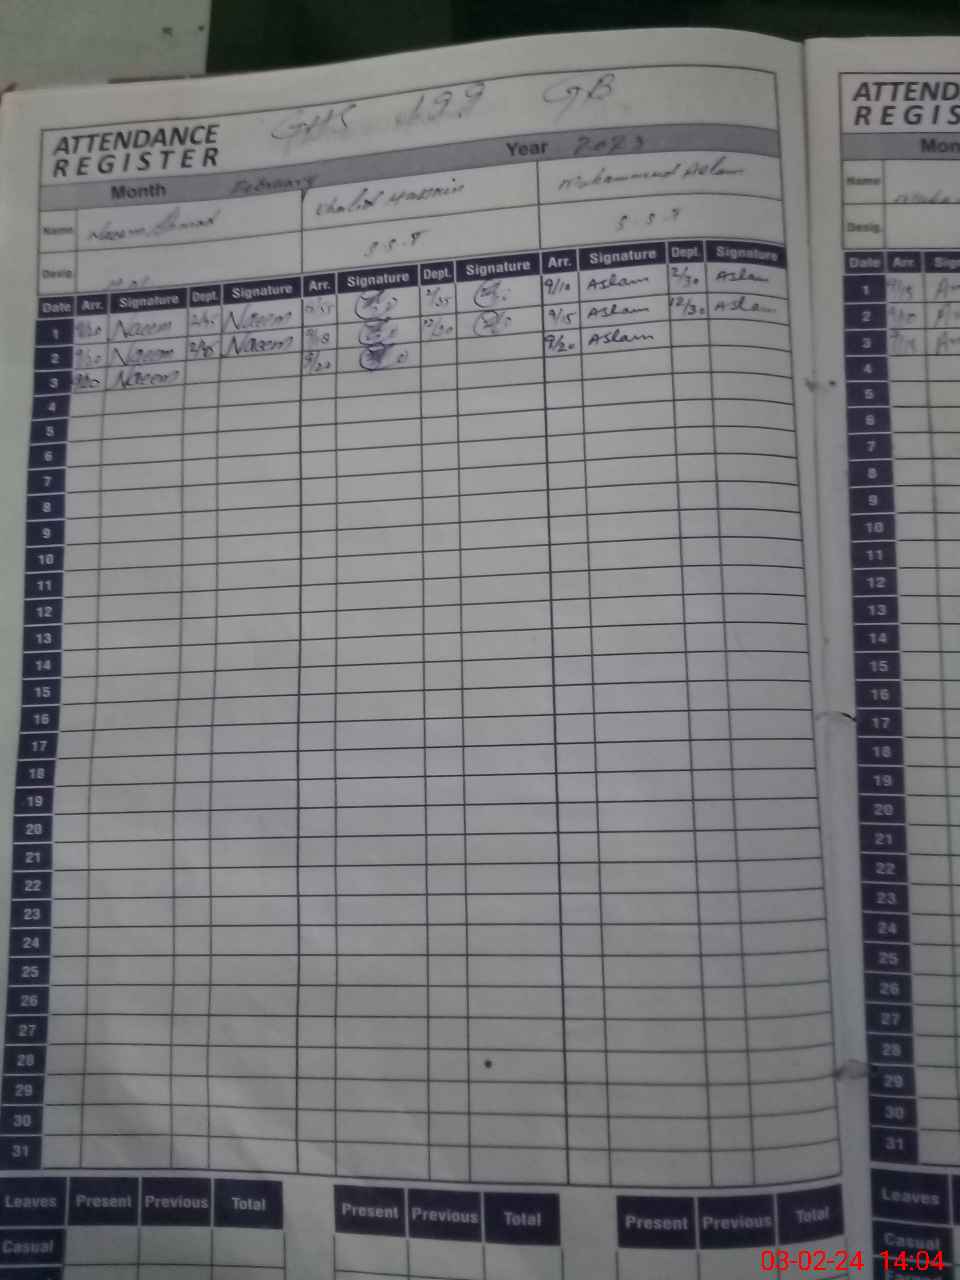 GHS 199 GB
ATTENDANCE
REGISTER
Month February Year 2023
Name Naeem Ahmad Khalid Hussain Muhammad Aslam
Desig. S.S.T S.S.T
Date Arr. Signature Dept. Signature Arr. Signature Dept. Signature Arr. Signature Dept. Signature
1 9/20 Naeem 2/35 Naeem 2/35 9/10 Aslam 2/30 Aslam
2 9/20 Naeem Naeem 9/18 12/30 9/15 Aslam 12/30 Aslam
3 9/20 Naeem 9/20 9/20 Aslam
4
5
6
7
8
9
10
11
12
13
14
15
16
17
18
19
20
21
22
23
24
25
26
27
28
29
30
31
Leaves Present Previous Total Present Previous Total Present Previous Total
Casual
ATTEND
REGIS
Mon
Name
Desig.
Date Arr. Sig
1
2
3
4
5
6
7
8
9
10
11
12
13
14
15
16
17
18
19
20
21
22
23
24
25
26
27
28
29
30
31
Leaves
Casual
03-02-24 14:04